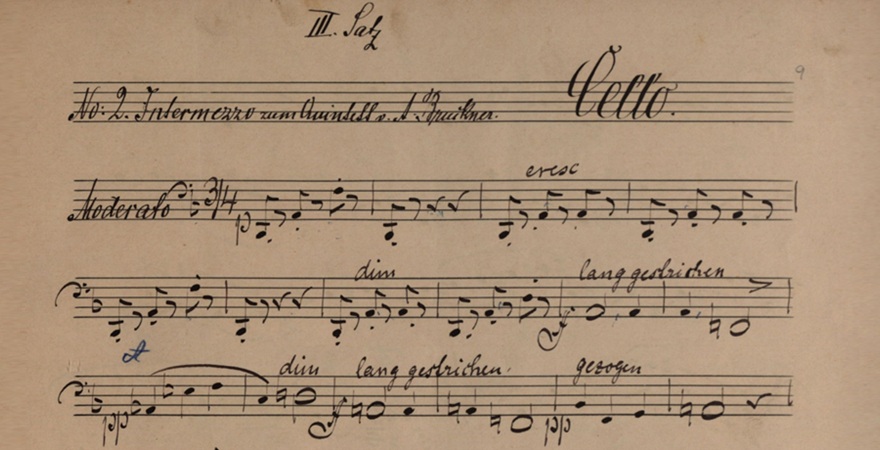 III. Satz
9
No: 2. Intermezzo zum Quintett v. A. Bruckner. Cello.
cresc
Moderato 3/4
p
dim lang gestrichen
A
dim lang gestrichen. gezogen
pp pp